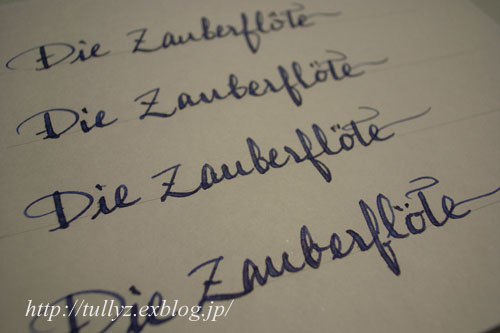 Die Zauberflöte
Die Zauberflöte
Die Zauberflöte
Die Zauberflöte
http://tullyz.exblog.jp/